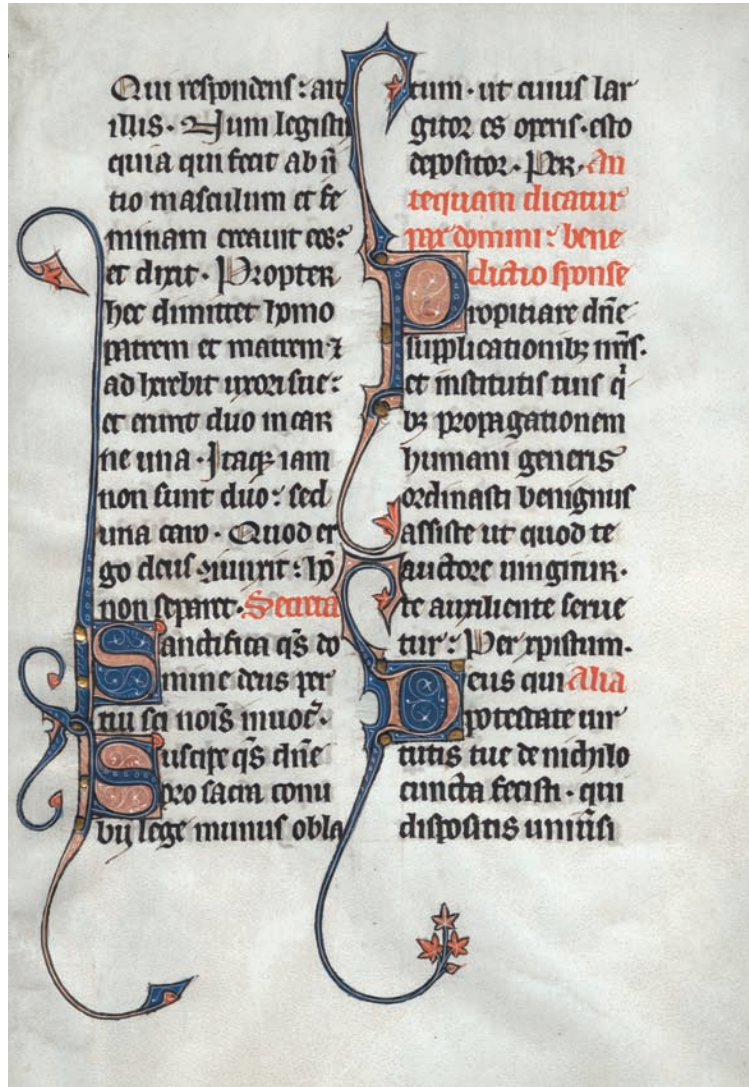 Qui respondens: ait
illis. Num legistis
quia qui fecit ab inī
tio masculum et fe
minam creauit eos:
et dixit. Propter
hec dimittet homo
patrem et matrem ⁊
ad herebit uxori sue:
et erunt duo in car
ne una. Itaqꝫ iam
non sunt duo: sed
una caro. Quod er
go deus iunxit: hō
non separet. Secreta
Sanctifica q̄s do
mine deus per
tui sci nois̄ inuoc̄.
Suscipe q̄s dn̄e
pro sacra conu
bij lege munus obla
tum. ut cuius lar
gitor es operis. esto
depositor. Per. An
tequam dicatur
pax domini: bene
dictio sponse
Propitiare dn̄e
supplicationibꝫ nr̄is.
et institutis tuis qͥ
bꝫ propagationem
humani generis
ordinasti benignus
assiste ut quod te
auctore iungitur.
te auxiliente serue
tur: Per xpistum.
Deus qui Alia
potestate uir
tutis tue de nichilo
cuncta fecisti. qui
dispositis uniūsi